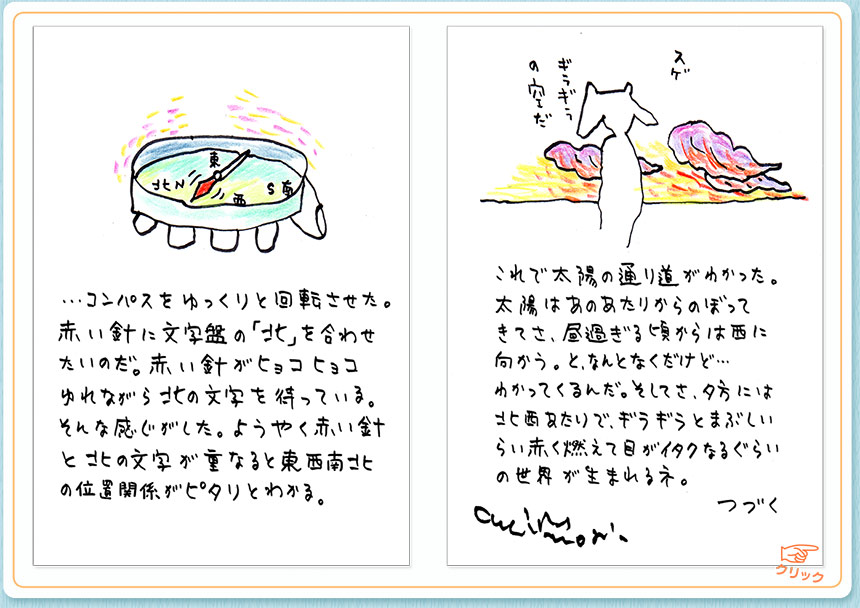 東
北N
S南
西
…コンパスをゆっくりと回転させた。
赤い針に文字盤の「北」を合わせ
たいのだ。赤い針がヒョコヒョコ
ゆれながら北の文字を待っている。
そんな感じがした。ようやく赤い針
と北の文字が重なると東西南北
の位置関係がピタリとわかる。
スゲ
ギラギラ
の空だ
これで太陽の通り道がわかった。
太陽はあのあたりからのぼって
きてさ、昼過ぎる頃からは西に
向かう。と、なんとなくだけど…
わかってくるんだ。そしてさ、夕方には
北西あたりで、ギラギラとまぶしい
らい赤く燃えて目がイタクなるぐらい
の世界が生まれるネ。
つづく
クリック